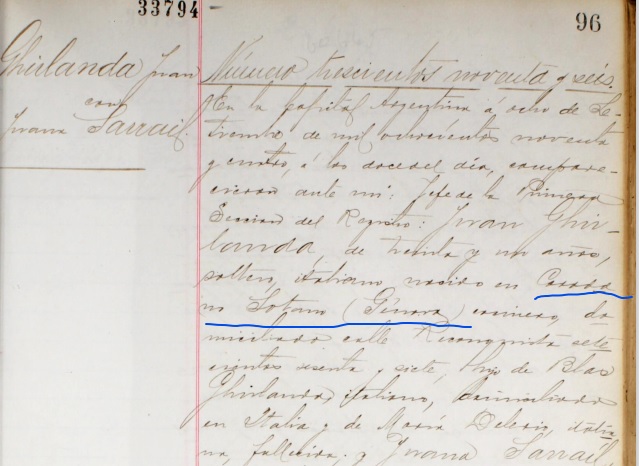 33794
96
Ghirlanda Juan
con
Juana Sarrail.
Número trescientos noventa y seis.
En la Capital Argentina á ocho de Se-
tiembre de mil ochocientos noventa
y cuatro, á las doce del día, compare-
cieron ante mí: Jefe de la Primera
Seccion del Registro: Juan Ghir-
landa, de treinta y un años,
soltero, italiano, nacido en
(Génova) cocinero, do-
miciliado calle Reconquista sete
cientos sesenta y siete, hijo de Blas
Ghirlanda, italiano, domiciliado
en Italia y de María italia
na, fallecida; y Juana Sarrail,